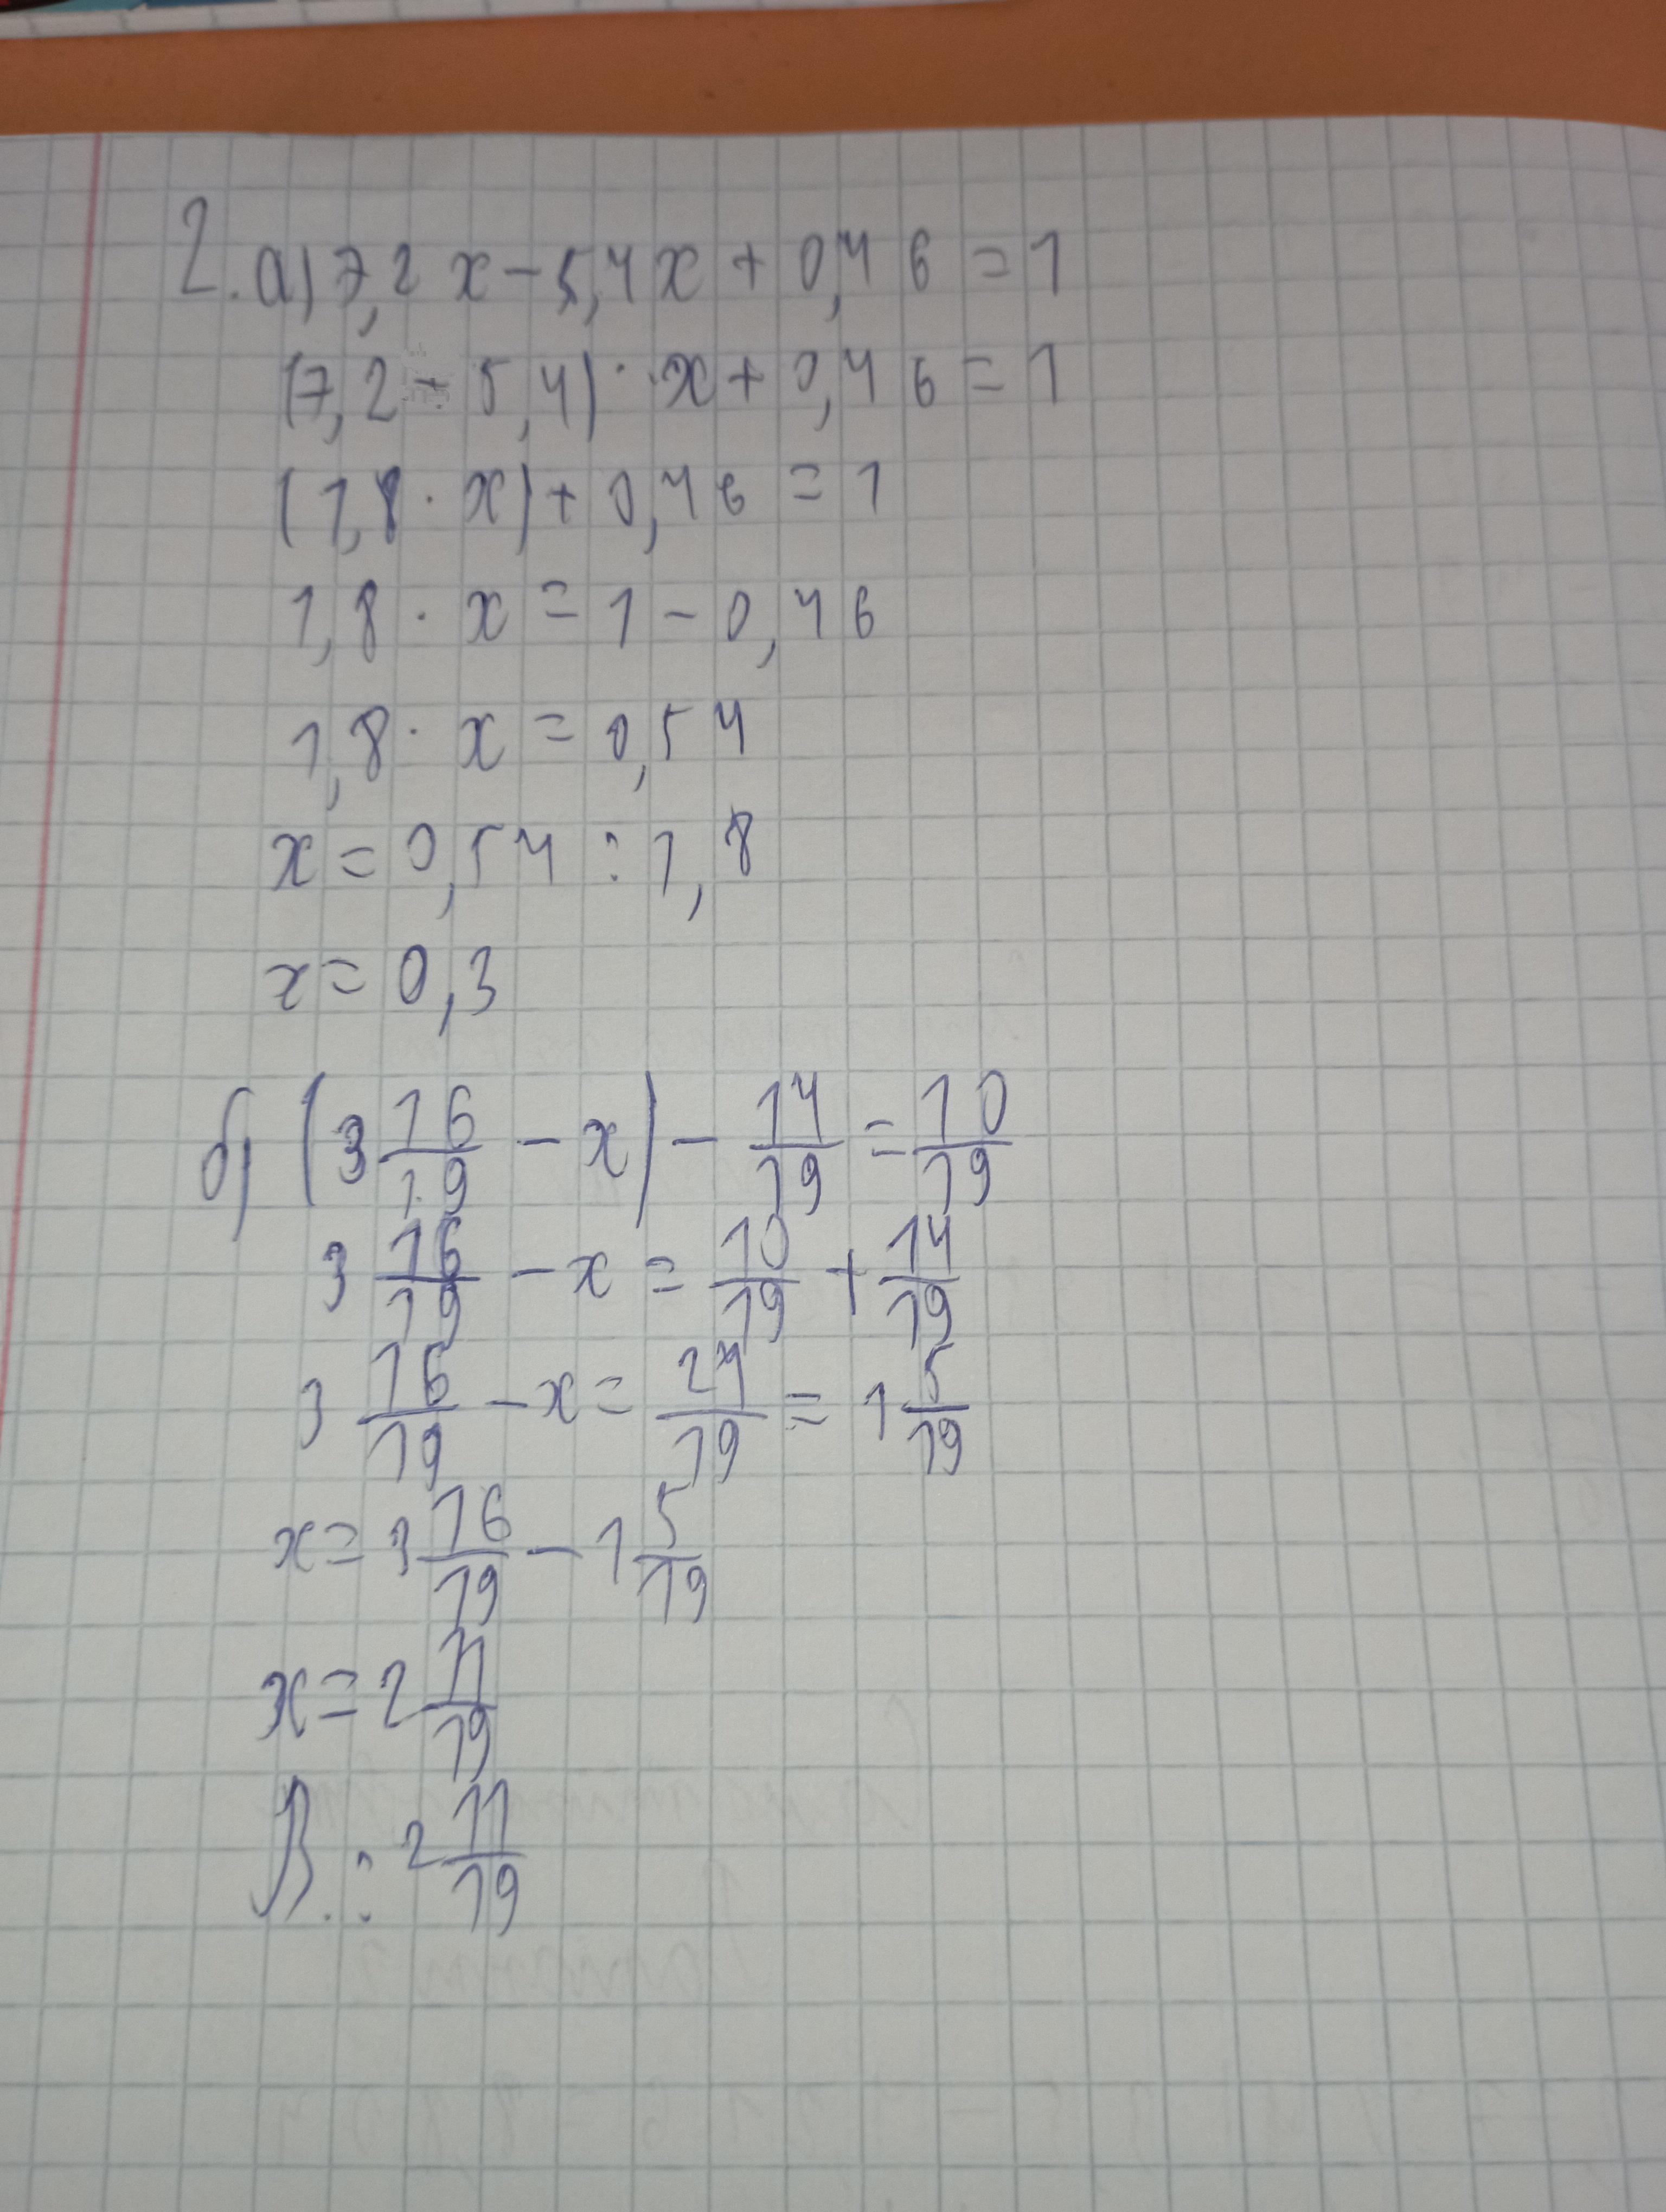 2. а) 7,2 x - 5,4x + 0,46 = 1
(7,2 - 5,4) · x + 0,46 = 1
(1,8 · x) + 0,46 = 1
1,8 · x = 1 - 0,46
1,8 · x = 0,54
x = 0,54 : 1,8
x = 0,3
б) (3 16/19 - x) - 14/19 = 10/19
3 16/19 - x = 10/19 + 14/19
3 16/19 - x = 24/19 = 1 5/19
x = 3 16/19 - 1 5/19
x = 2 11/19
В.: 2 11/19